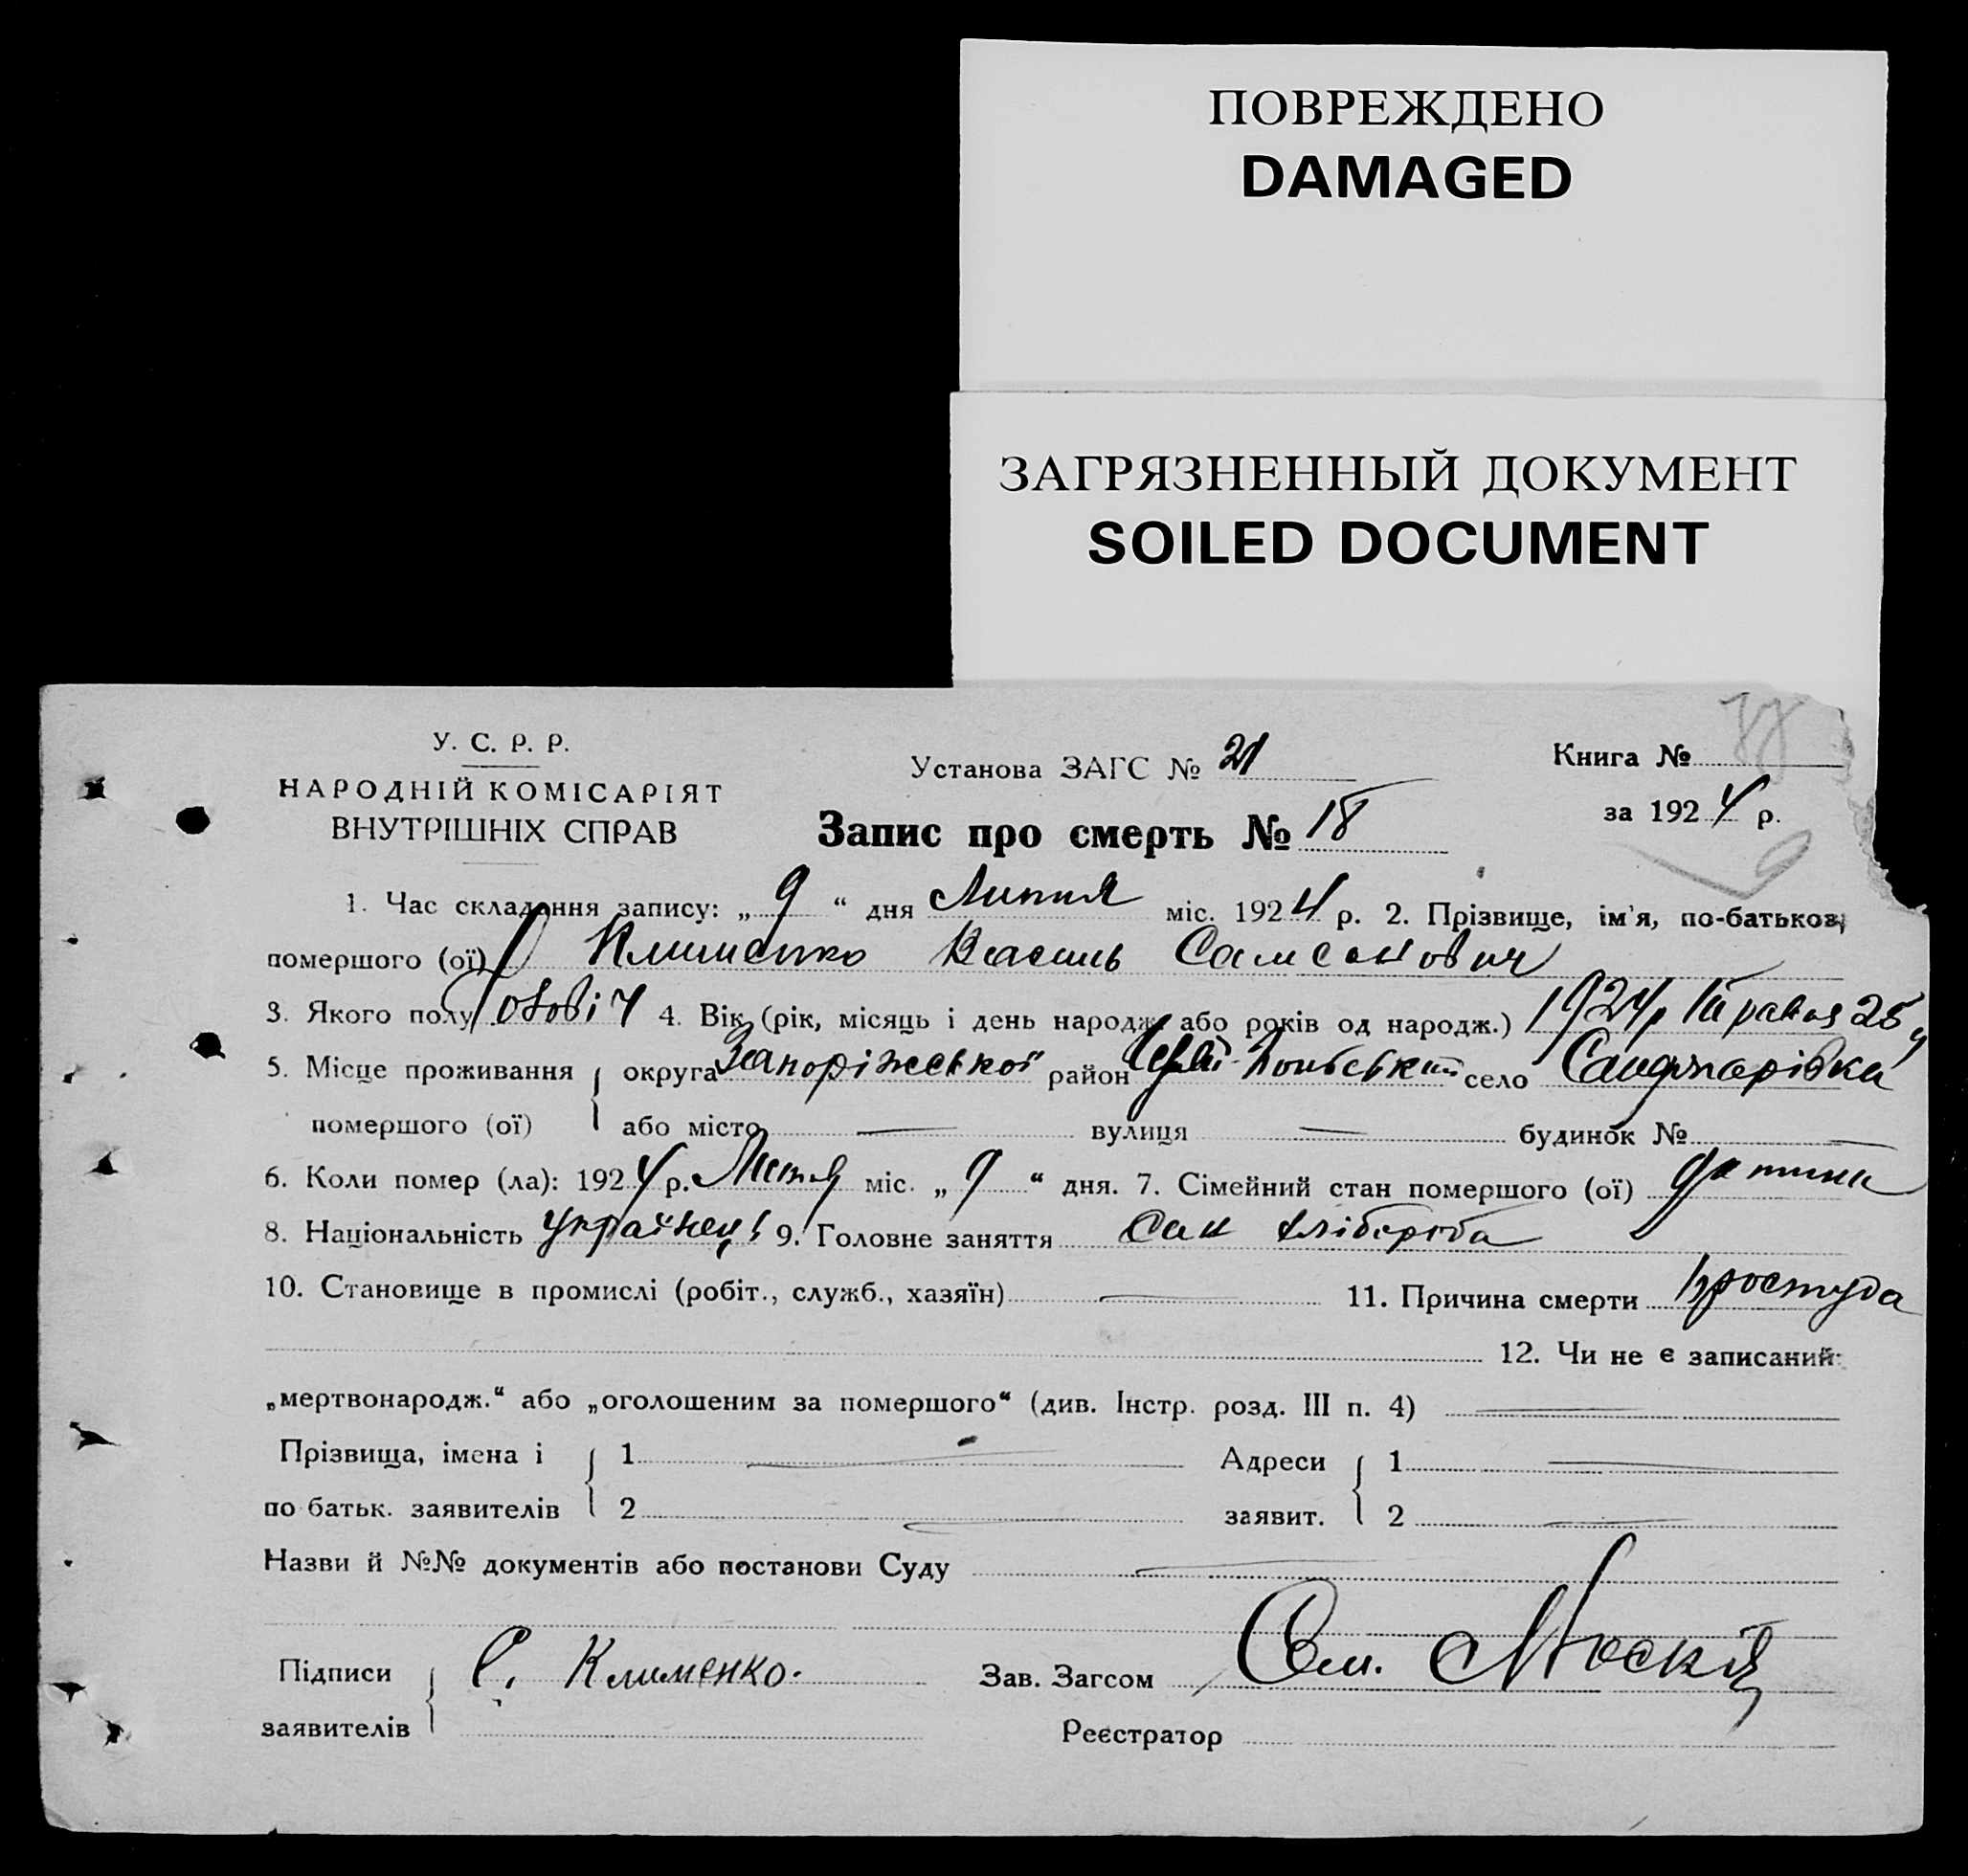 ПОВРЕЖДЕНО
DAMAGED
ЗАГРЯЗНЕННЫЙ ДОКУМЕНТ
SOILED DOCUMENT
У. С. Р. Р.
НАРОДНІЙ КОМІСАРІЯТ
ВНУТРІШНІХ СПРАВ
Установа ЗАГС № 21
Книга №
за 1924 р.
Запис про смерть № 18
1. Час складання запису: „ 9 “ дня Липня міс. 1924 р. 2. Прізвище, ім'я, по-батьков,
помершого (ої) Клименко Василь Самсонович
3. Якого полу 4. Вік (рік, місяць і день народж. або років од народж.) 1924 р. травня 25
5. Місце проживання округа Запоріжської район село
помершого (ої) або місто — вулиця — будинок № —
6. Коли помер (ла): 1924 р. Липня міс. „ 9 “ дня. 7. Сімейний стан помершого (ої) дитина
8. Національність українець 9. Головне заняття Син хлібороба
10. Становище в промислі (робіт., служб., хазяїн) — 11. Причина смерти простуда
12. Чи не є записаний:
„мертвонародж.“ або „оголошеним за помершого“ (див. Інстр. розд. III п. 4) —
Прізвища, імена і 1 — Адреси 1 —
по батьк. заявителів 2 — заявит. 2 —
Назви й №№ документів або постанови Суду —
Підписи С. Клименко. Зав. Загсом
заявителів Реєстратор